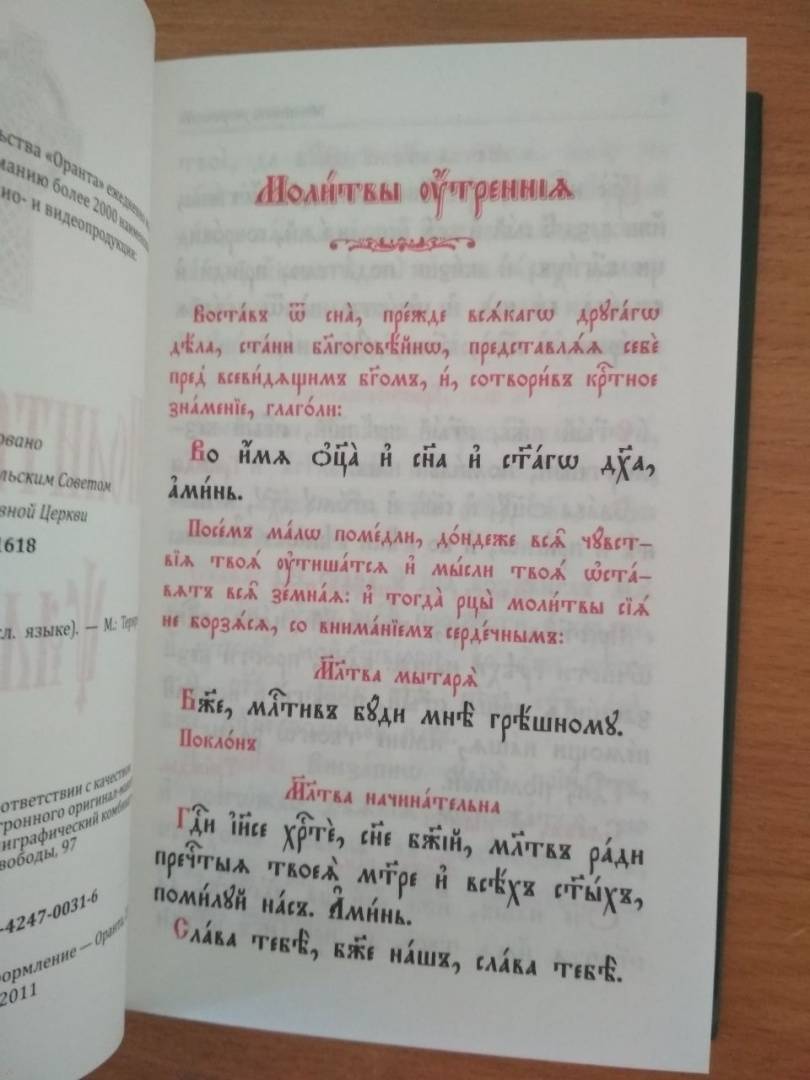 ьства «Оранта» ежедневно
манию более 2000
ио- и видеопродукции:
овано
льским Советом
вной Церкви
1618
сл. языке). — М.:
оответствии с качеством
тронного оригинал-
играфический
вободы, 97
-4247-0031-6
формление — Оранта,
2011
Моли́твы ᲂу҆́трєннїѧ
Воста́въ ѿ сна̀, пре́жде всѧ́кагѡ друга́гѡ
дѣ́ла, ста́ни бл҃гоговѣ́йнѡ, представлѧ́ѧ себѐ
пред̾ всеви́дѧщимъ бг҃омъ, и҆, сотвори́въ крⷭ҇тное
зна́менїе, глаго́ли:
Во и҆́мѧ ѻ҆ц҃а̀ и҆ сн҃а и҆ ст҃а́гѡ дх҃а,
а҆ми́нь.
Посе́мъ ма́лѡ поме́дли, до́ндеже всѧ̑ чꙋ̑вст-
вїѧ твоѧ̑ ᲂу҆тиша́тсѧ и҆ мы́сли твоѧ̑ ѡ҆ста́-
вѧтъ всѧ̑ земна̑ѧ: и҆ тогда̀ рцы̀ моли́твы сїѧ̑
не борзѧ́сѧ, со внима́нїемъ серде́чнымъ:
Мл҃тва мытарѧ̀
Бж҃е, млⷭ҇тивъ бꙋ́ди мнѣ̀ грѣ́шномꙋ.
Покло́нъ
Мл҃тва начина́тельна
Гдⷭ҇и і҆и҃се хрⷭ҇тѐ, сн҃е бж҃їй, мл҃твъ ра́ди
пречⷭ҇тыѧ твоеѧ̀ мт҃ре и҆ всѣ́хъ ст҃ы́хъ,
поми́лꙋй на́съ. А҆ми́нь.
Сла́ва тебѣ̀, бж҃е на́шъ, сла́ва тебѣ̀.